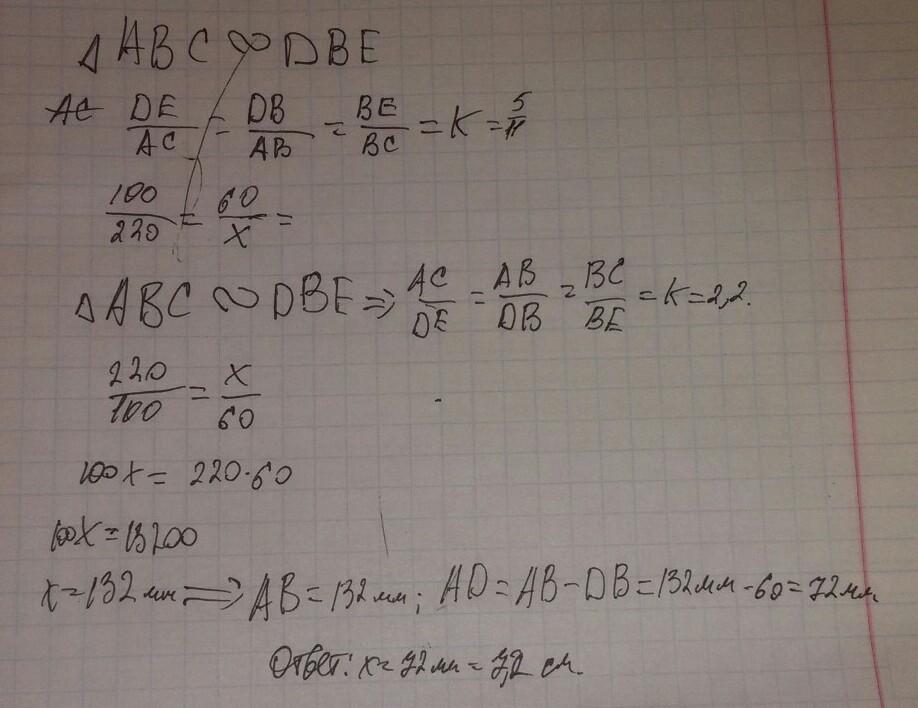 △ ABC ∞ DBE
AC DE/AC = DB/AB = BE/BC = K = 5/11
100/220 = 60/x =
△ ABC ∞ DBE ⇒ AC/DE = AB/DB = BC/BE = K = 2,2.
220/100 = x/60
100x = 220·60
100x = 13200
x = 132 мм ⇒ AB = 132 мм; AD = AB - DB = 132 мм - 60 = 72 мм
Ответ: x = 72 мм = 7,2 см.